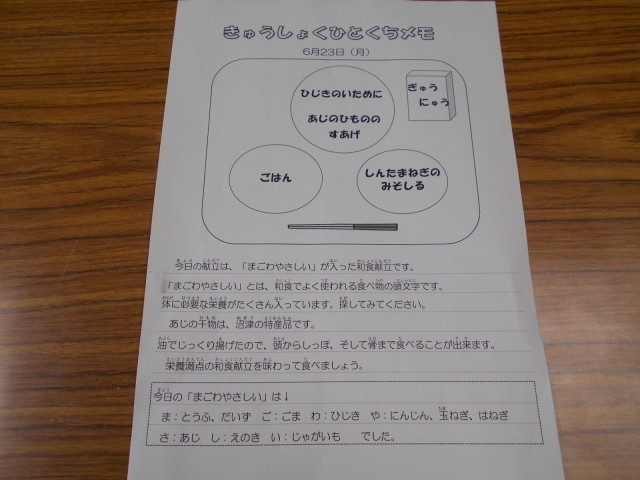 きゅうしょくひとくちメモ
6月23日(月)
ひじきのいために
あじのひものの
すあげ
ぎゅう
にゅう
ごはん
しんたまねぎの
みそしる
今日の献立は、「まごわやさしい」が入った和食献立です。
「まごわやさしい」とは、和食でよく使われる食べ物の頭文字です。
体に必要な栄養がたくさん入っています。探してみてください。
あじの干物は、沼津の特産品です。
油でじっくり揚げたので、頭からしっぽ、そして骨まで食べることが出来ます。
栄養満点の和食献立を味わって食べましょう。
今日の「まごわやさしい」は↓
ま:とうふ、だいず ご:ごま わ:ひじき や:にんじん、玉ねぎ、はねぎ
さ:あじ し:えのき い:じゃがいも でした。